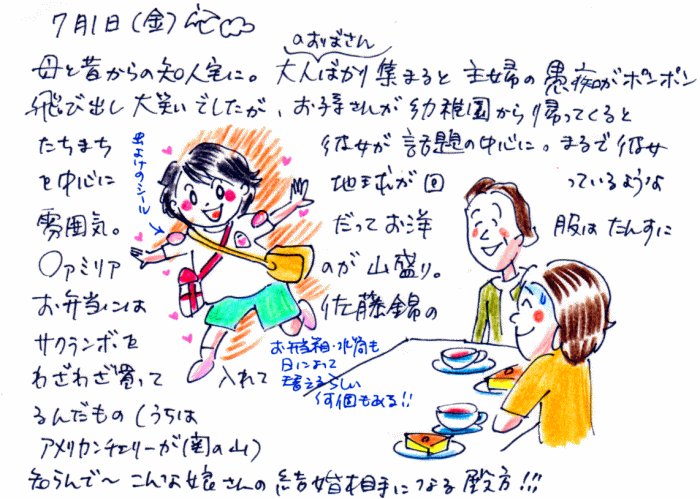 7月1日(金)
のおばさん
母と昔からの知人宅に。大人ばかり集まると主婦の愚痴がポンポン
飛び出し大笑いでしたが、お子さんが幼稚園から帰ってくると
たちまち 彼女が話題の中心に。まるで彼女
を中心に 地球が回っているような
雰囲気。 だってお洋服はたんすに
〇ァミリア のが山盛り。
お弁当には 佐藤錦の
サクランボを
わざわざ買って 入れて
るんだもの(うちは
アメリカンチェリーが(関の山)
知らんで〜こんな娘さんの結婚相手になる殿方!!!
虫よけのシール
お弁当箱・水筒も
日によって
替えるらしい
何個もある!!